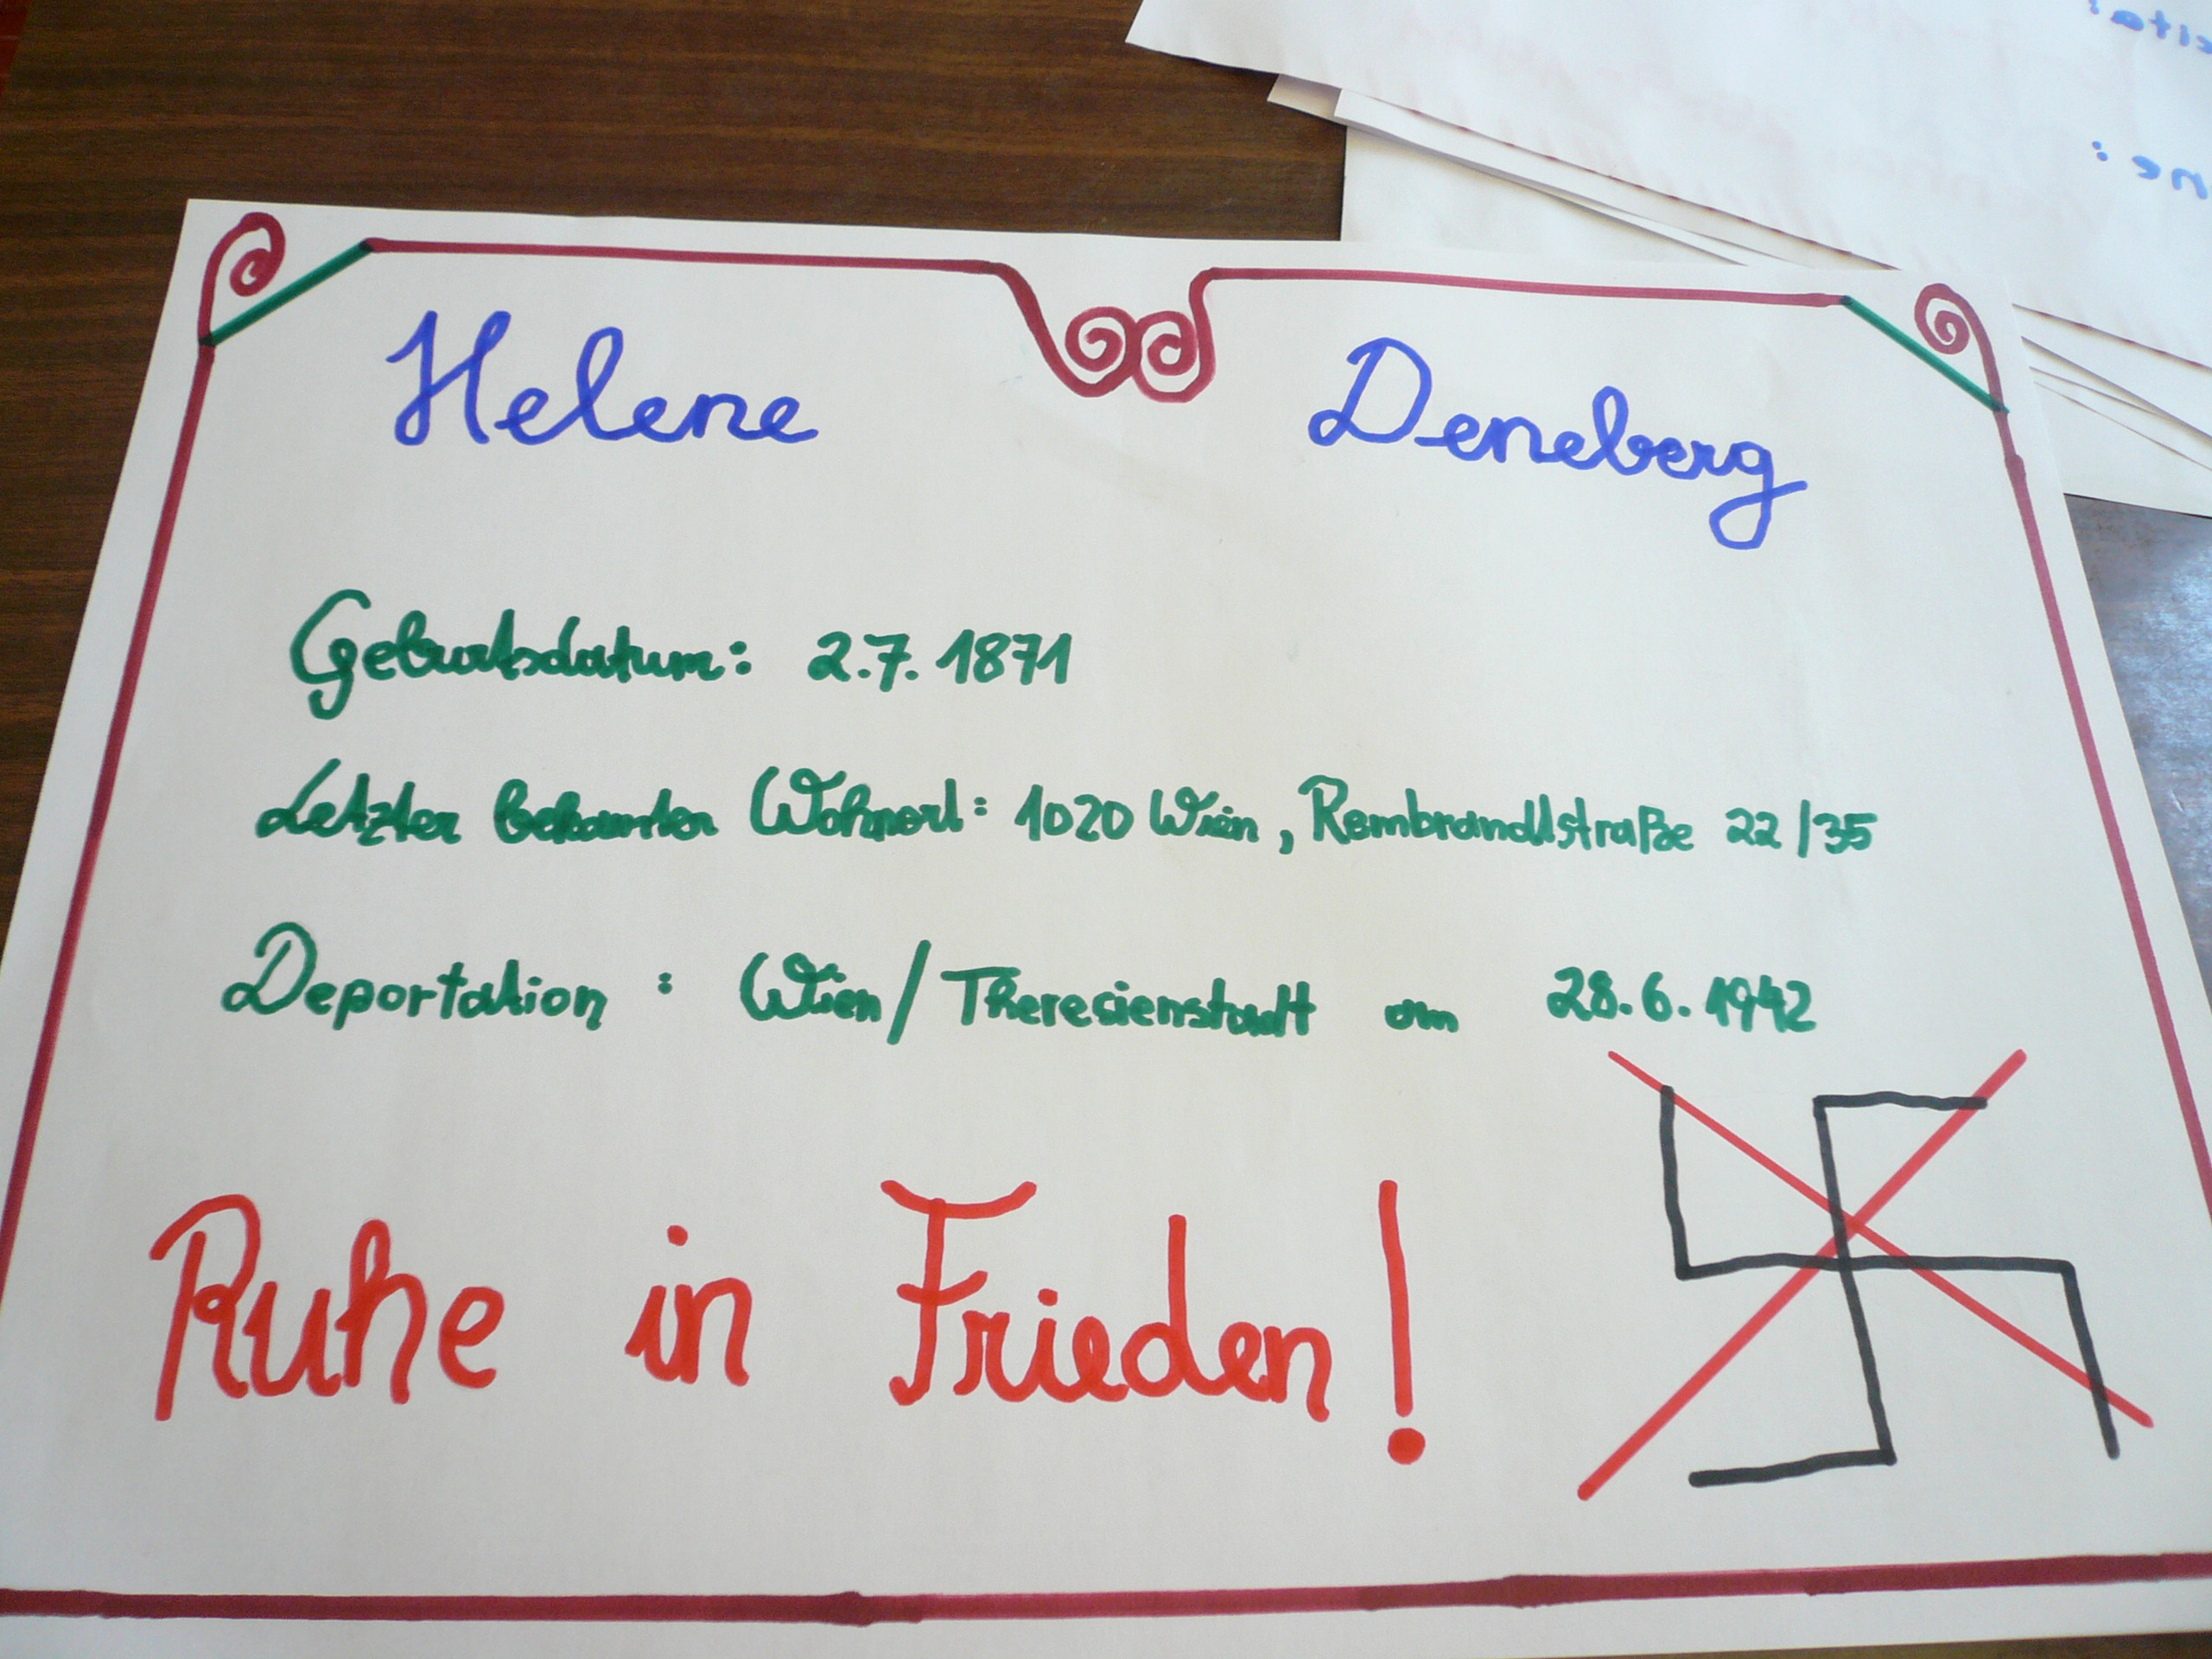 Helene Deneberg
Geburtsdatum: 2.7.1871
Letzter bekannter Wohnort: 1020 Wien, Rembrandtstraße 22/35
Deportation: Wien/Theresienstadt am 28.6.1942
Ruhe in Frieden!
ne: